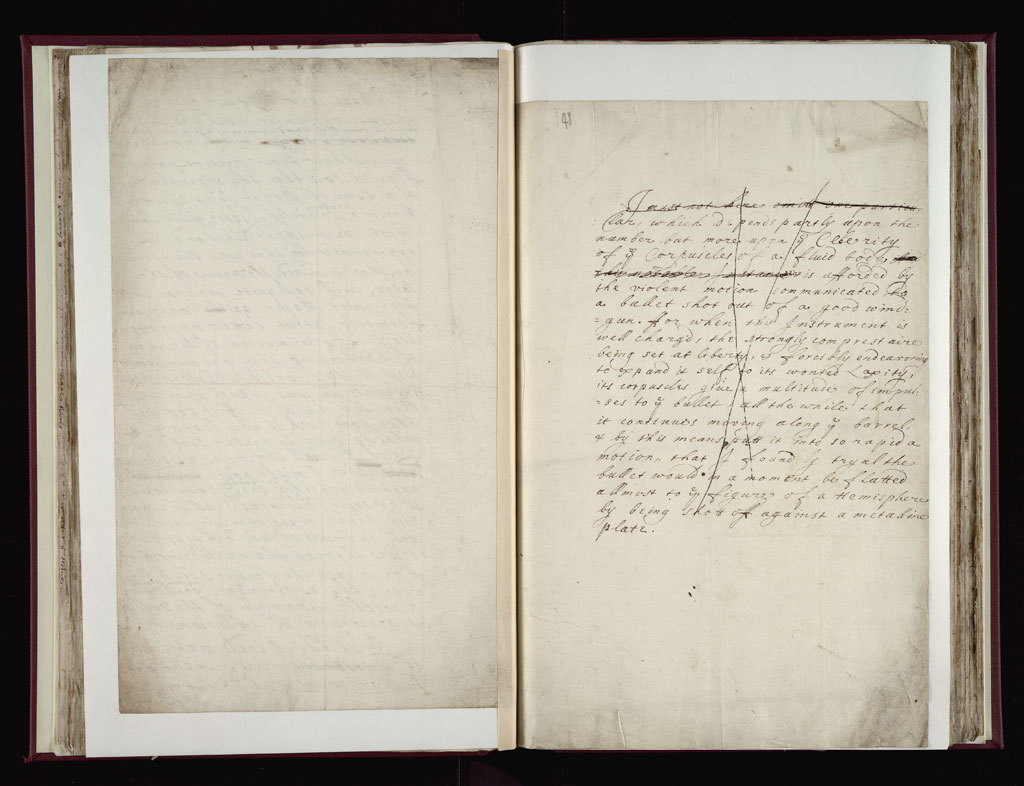 41
I must not here omit one particu
:lar, which depends partly upon the
number but more upon ye Celerity
of ye Corpuscles of a fluid body,
is afforded by
the violent motion communicated to
a bullet shot out of a good wind:
=gun. For when this Instrument is
well charg'd, the strongly comprest aire
being set at liberty, & forcibly endeavoring
to expand it self to its wonted Laxity,
its corpuscles give a multitude of impul
=ses to ye bullet, all the while that
it continues moving along ye barrel
& by this means putt it into so rapid a
motion, that I found by tryal the
bullet would in a moment be flatted
allmost to ye figure of a Hemisphere
by being shott off against a metalline
plate.